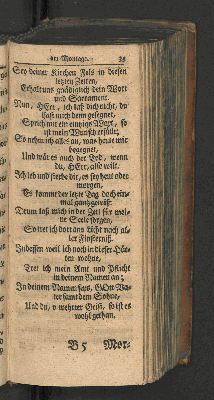 am Montage. 33
Sey deiner Kirchen Fels in diesen
letzten Zeiten,
Erhalt uns gnädiglich dein Wort
und Sacrament.
Nun, HErr, ich laß dich nicht, du
hast mich denn gesegnet,
Sprich mit ein eintzigs Wort, so
ist mein Wunsch erfüllt,
So nehm ich alles an, was heut mir
begegnet,
Und wär es auch der Tod, wenn
du, HErr, also wilt.
Ich leb und sterbe dir, es sey heut oder
morgen,
Es kommt der letzte Tag doch ein-
mal gantz gewiß:
Drum laß mich in der Zeit für mei-
ne Seele sorgen,
So tret ich dort ans Licht nach al-
ler Finsterniß.
Indessen weil ich noch in dieser Hüt-
ten wohne,
Tret ich mein Amt und Pflicht
in deinem Namen an;
In deinem Namen sars, GOtt Va-
ter samt dem Sohne,
Und du, o wehrter Geist, so ist es
wohl gethan.
B 5 Mor-